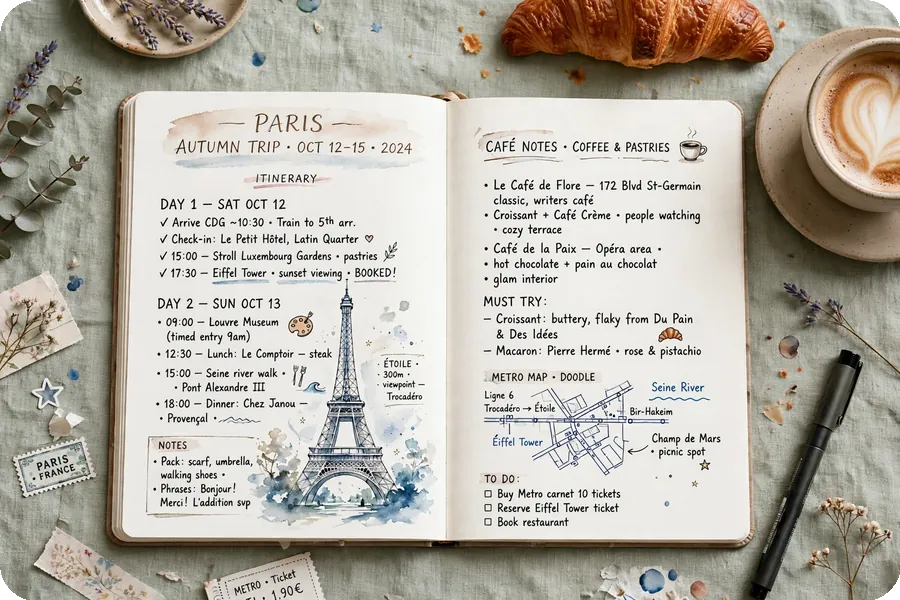 PARIS
AUTUMN TRIP • OCT 12–15 • 2024
ITINERARY
DAY 1 — SAT OCT 12
✓ Arrive CDG ~10:30 • Train to 5th arr.
✓ Check-in: Le Petit Hôtel, Latin Quarter ♡
✓ 15:00 — Stroll Luxembourg Gardens • pastries
✓ 17:30 — Eiffel Tower • sunset viewing • BOOKED!
DAY 2 — SUN OCT 13
• 09:00 — Louvre Museum
(timed entry 9am)
• 12:30 — Lunch: Le Comptoir — steak
• 15:00 — Seine river walk •
• Pont Alexandre III
• 18:00 — Dinner: Chez Janou —
• Provençal •
• ÉTOILE •
300m •
• viewpoint —
Trocadéro
NOTES
• Pack: scarf, umbrella,
walking shoes •
• Phrases: Bonjour!
Merci! L'addition svp
CAFÉ NOTES • COFFEE & PASTRIES
• Le Café de Flore — 172 Blvd St-Germain
classic, writers café
• Croissant + Café Crème • people watching
• cozy terrace
• Café de la Paix — Opéra area •
• hot chocolate + pain au chocolat
• glam interior
MUST TRY:
— Croissant: buttery, flaky from Du Pain
& Des Idées
— Macaron: Pierre Hermé • rose & pistachio
METRO MAP • DOODLE
Ligne 6
Trocadéro → Étoile
Seine River
Bir-Hakeim
Eiffel Tower
Champ de Mars
• picnic spot
TO DO:
☐ Buy Metro carnet 10 tickets
☐ Reserve Eiffel Tower ticket
☐ Book restaurant
PARIS
• FRANCE •
METRO • Ticket
1,90€